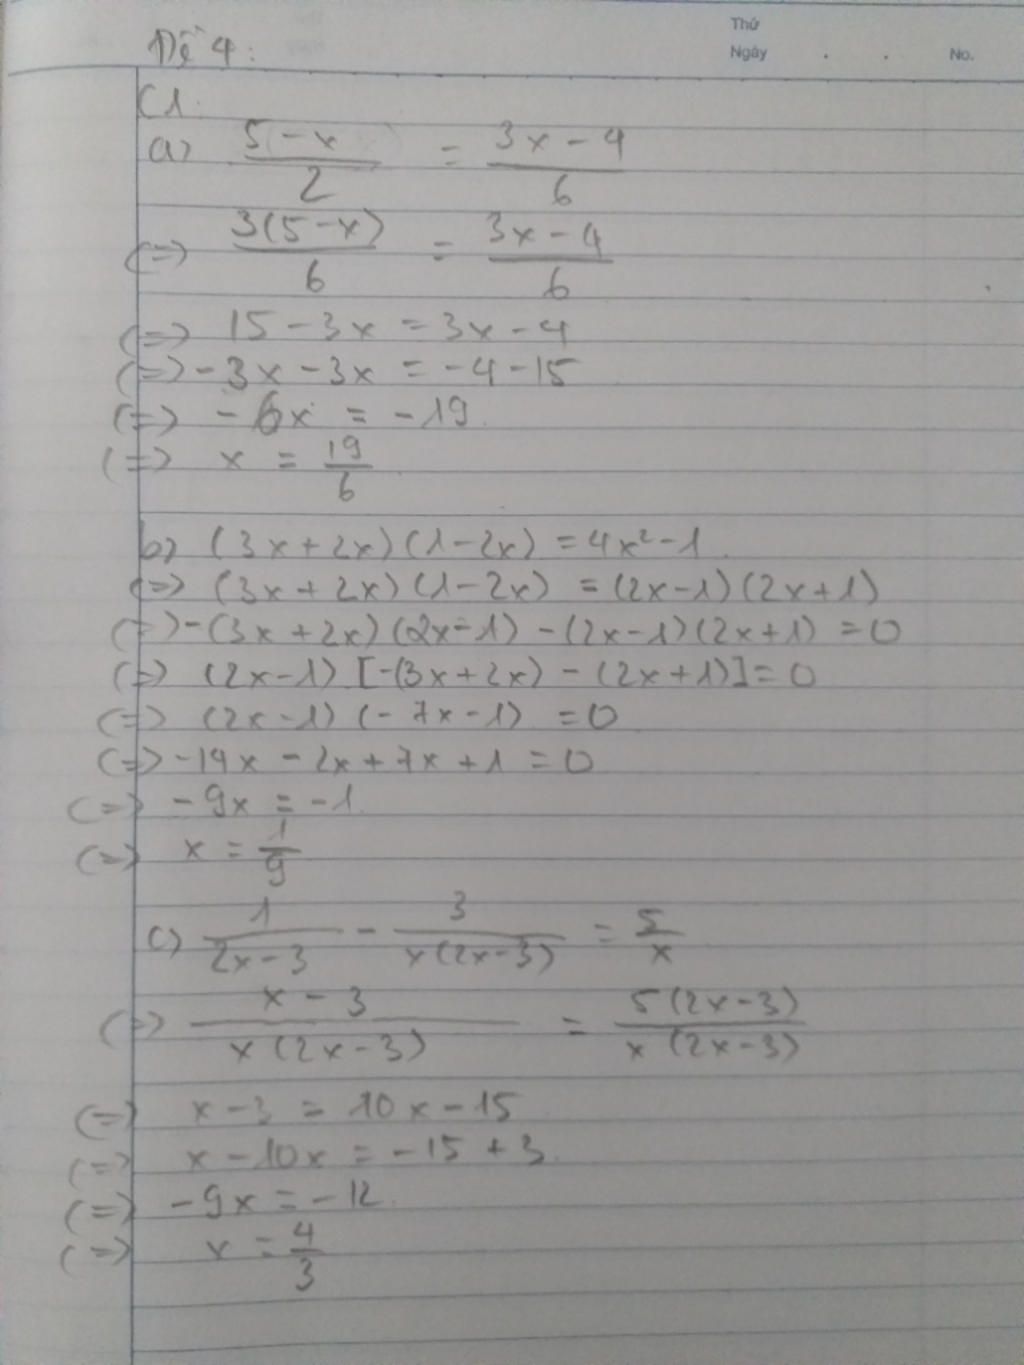 Thứ
Đề 4:
Ngày . . No.
C1.
a) (5 - x)/2 = (3x - 4)/6
(=) 3(5 - x)/6 = (3x - 4)/6
(=) 15 - 3x = 3x - 4
(=) - 3x - 3x = -4 - 15
(=) - 6x = -19.
(=) x = 19/6
b) (3x + 2x)(1 - 2x) = 4x² - 1.
(=) (3x + 2x)(1 - 2x) = (2x - 1)(2x + 1)
(=) -(3x + 2x)(2x - 1) - (2x - 1)(2x + 1) = 0
(=) (2x - 1) [-(3x + 2x) - (2x + 1)] = 0
(=) (2x - 1)(- 7x - 1) = 0
(=) -14x - 2x + 7x + 1 = 0
(=) - 9x = -1.
(=) x = 1/9
c) 1/(2x - 3) - 3/(x(2x - 3)) = 5/x
(=) (x - 3)/(x(2x - 3)) = 5(2x - 3)/(x(2x - 3))
(=) x - 3 = 10x - 15
(=) x - 10x = -15 + 3.
(=) - 9x = -12.
(=) x = 4/3